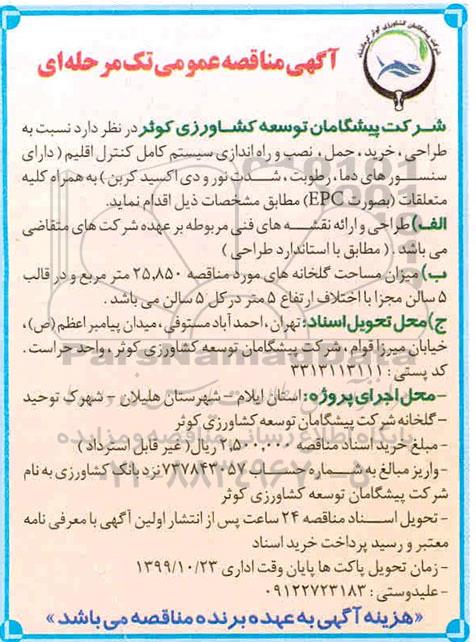 آگهی مناقصه عمومی تک مرحله‌ای
شرکت پیشگامان توسعه کشاورزی کوثر در نظر دارد نسبت به
طراحی ، خرید ، حمل ، نصب و راه اندازی سیستم کامل کنترل اقلیم ( دارای
سنسورهای دما ، رطوبت ، شدت نور و دی اکسید کربن ) به همراه کلیه
متعلقات (بصورت EPC) مطابق مشخصات ذیل اقدام نماید.
الف) طراحی و ارائه نقشه های فنی مربوطه بر عهده شرکت های متقاضی
می باشد . ( مطابق با استاندارد طراحی )
ب) میزان مساحت گلخانه های مورد مناقصه ۲۵,۸۵۰ متر مربع و در قالب
۵ سالن مجزا با اختلاف ارتفاع ۵ متر در کل ۵ سالن می باشد .
ج) محل تحویل اسناد: تهران ، احمد آباد مستوفی ، میدان پیامبر اعظم (ص) ،
خیابان میرزا قوام ، شرکت پیشگامان توسعه کشاورزی کوثر ، واحد حراست .
کد پستی : ۳۳۱۳۱۱۳۱۱۱
- محل اجرای پروژه: استان ایلام - شهرستان هلیلان - شهرک توحید
- گلخانه شرکت پیشگامان توسعه کشاورزی کوثر
- مبلغ خرید اسناد مناقصه ۲,۵۰۰,۰۰۰ ریال( غیر قابل استرداد )
- واریز مبالغ به شماره حساب ۷۳۷۸۴۳۰۵۷ نزد بانک کشاورزی به نام
شرکت پیشگامان توسعه کشاورزی کوثر
- تحویل اسناد مناقصه ۲۴ ساعت پس از انتشار اولین آگهی با معرفی نامه
معتبر و رسید پرداخت خرید اسناد
- زمان تحویل پاکت ها پایان وقت اداری ۱۳۹۹/۱۰/۲۳
- علیدوستی : ۰۹۱۲۲۷۲۳۱۸۳
«هزینه آگهی به عهده برنده مناقصه می باشد»
ParsNamadData
پایگاه اطلاع رسانی مناقصه و مزایده
۰۲۱-۸۸۳۴۹۶۷۰-۵